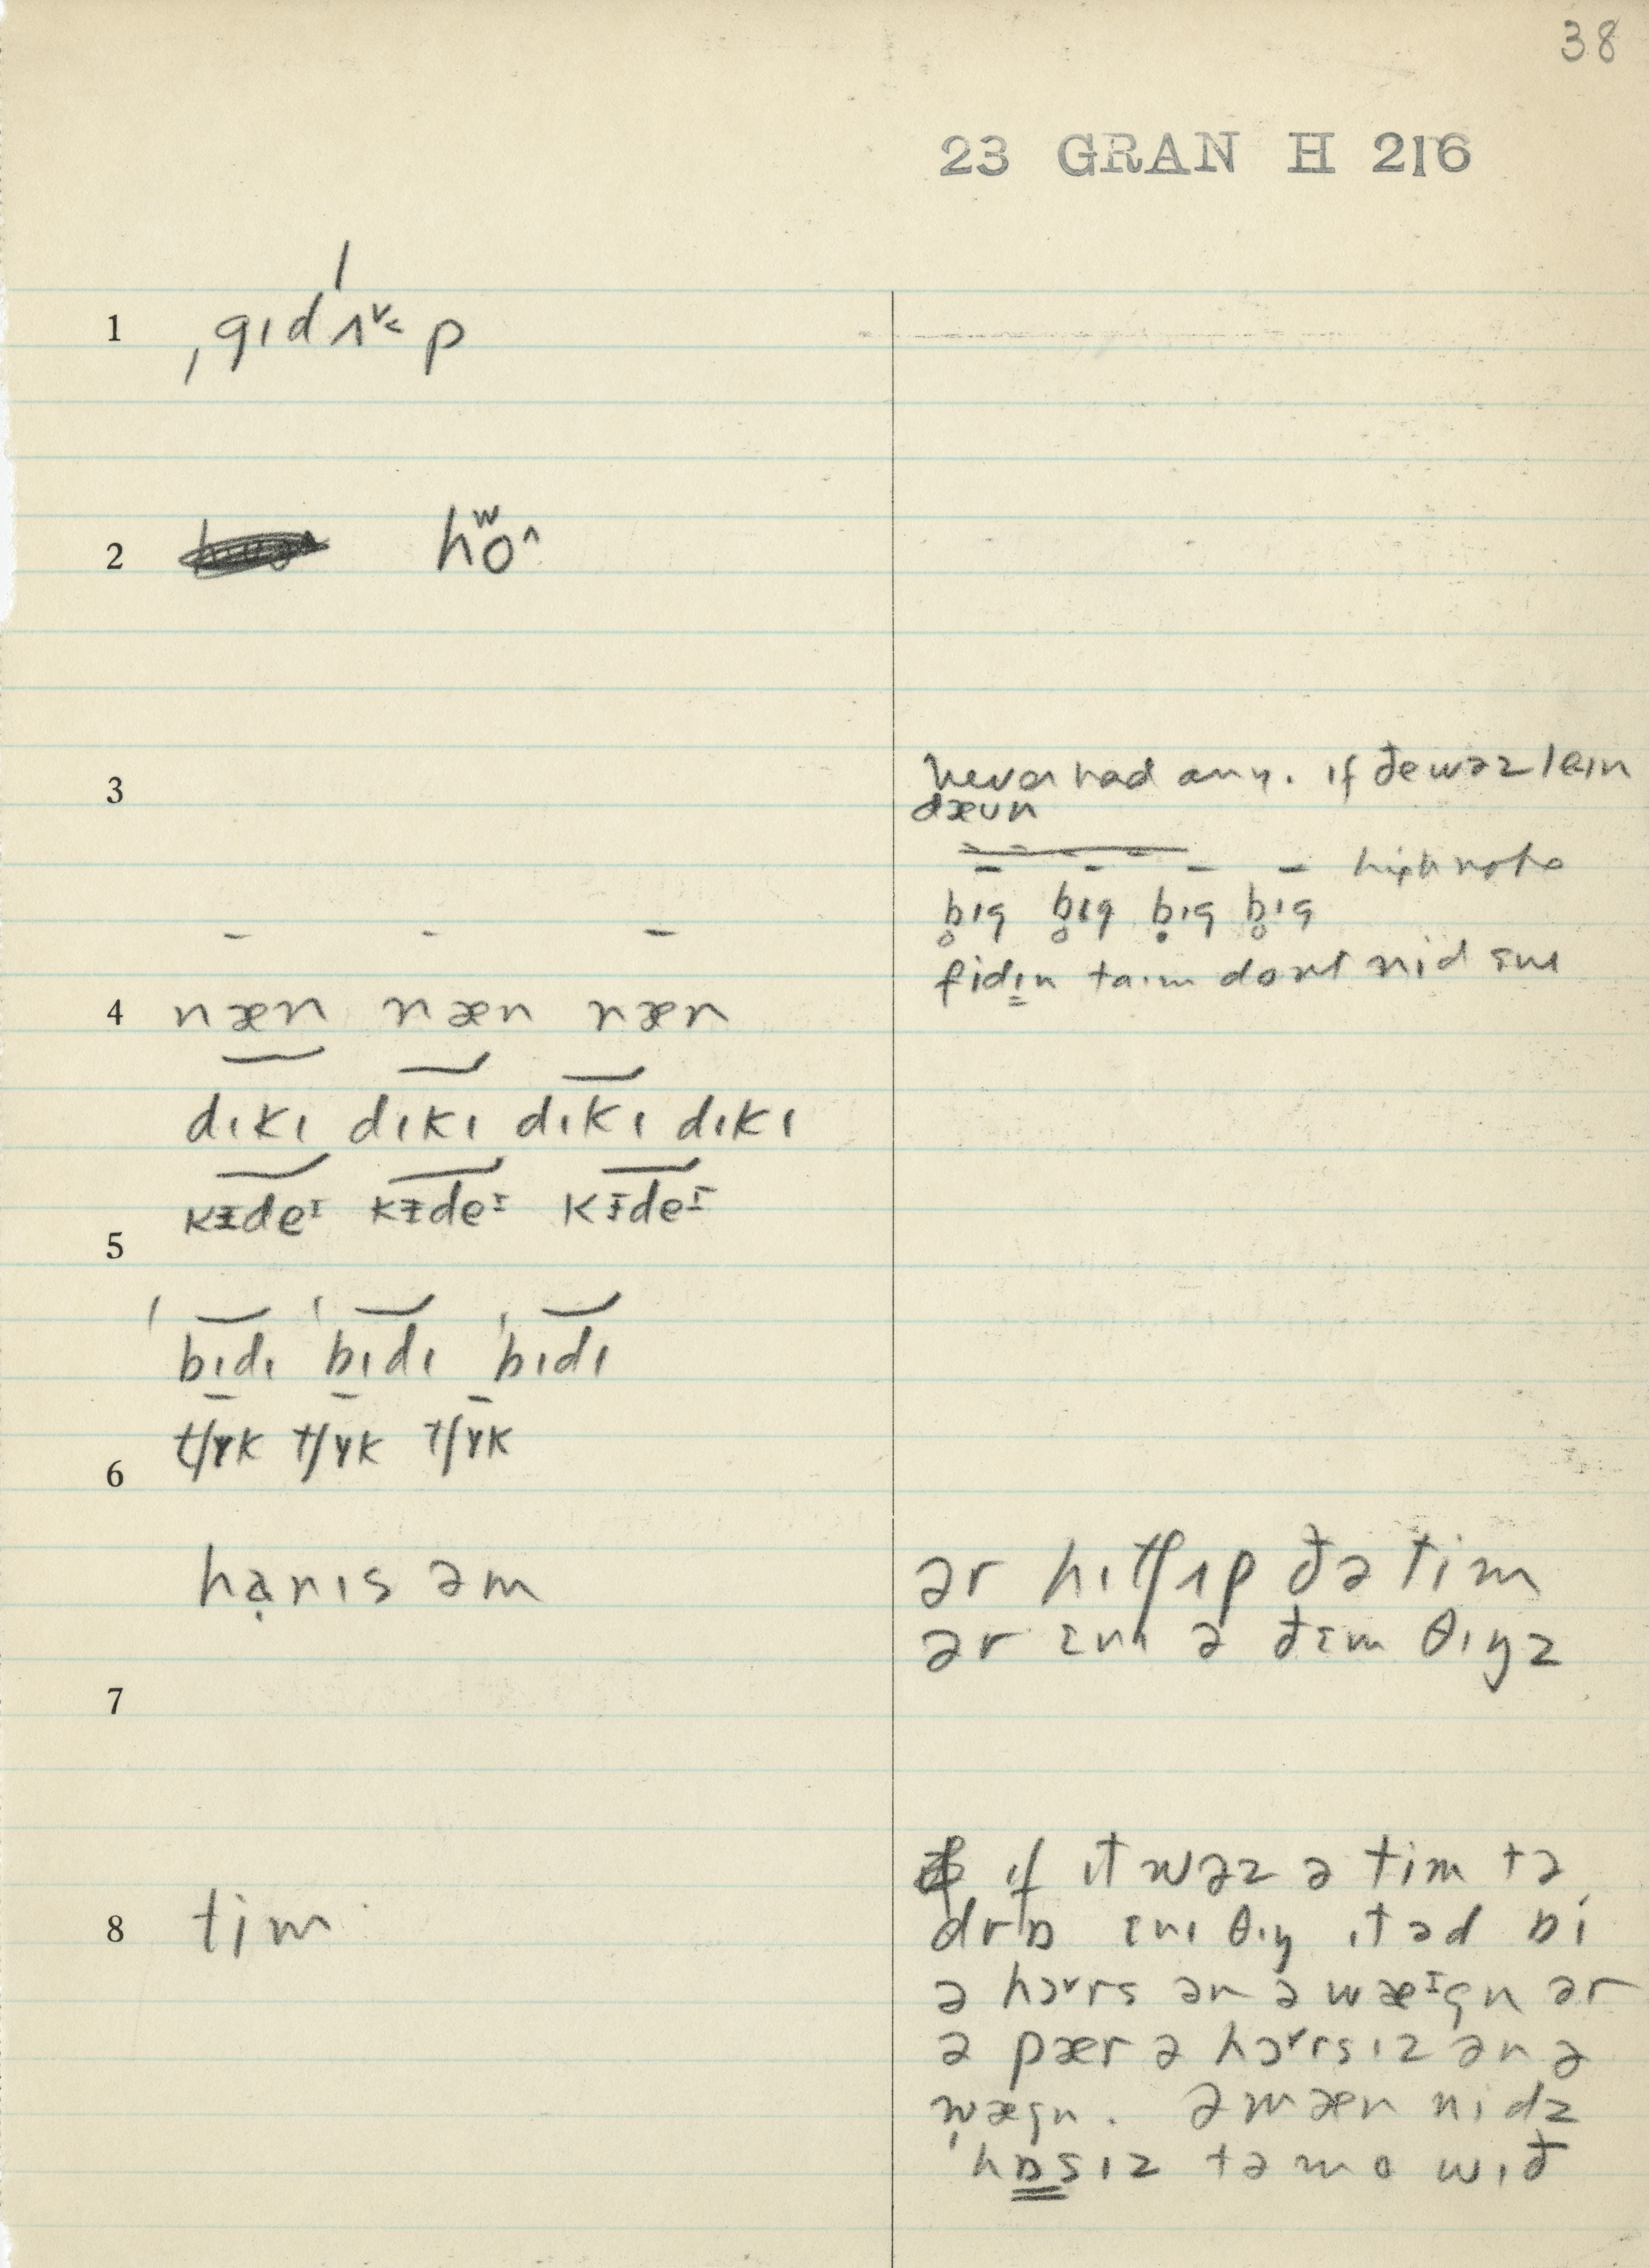 38
23 GRAN H 216
1 ˌgɪdˈʌ˅˂p
2 hʷo^
3 never had any. ɪf đe wəz leɪn
dæun
high note
b̥ɪg b̥ɪg ḅɪg b̥ɪg
fidɪn taɪm dont nid ɛnɪ
4 næn næn næn
dɪkɪ dɪkɪ dɪkɪ dɪkɪ
kɪdeᴵ kɪdeᴵ kɪdeᴵ
5
ˈbɪdɪ ˈbɪdɪ ˈbɪdɪ
tʃɤk tʃɤk tʃɤk
6
hạrɪs əm
ər hɪtʃʌp đə tim
ər ɛnɪ ə đɛm θɪŋz
7
8 tim
ɪf ɪt wəz ə tim tə
drɒ ɛnɪ θɪŋ ɪt əd bi
ə hɔ˅rs ən ə wæᴵgn ər
ə pær ə hɔ˅rsɪz ən ə
wægn. ə mæn nidz
ˈhɒsɪz tə mo wɪđ